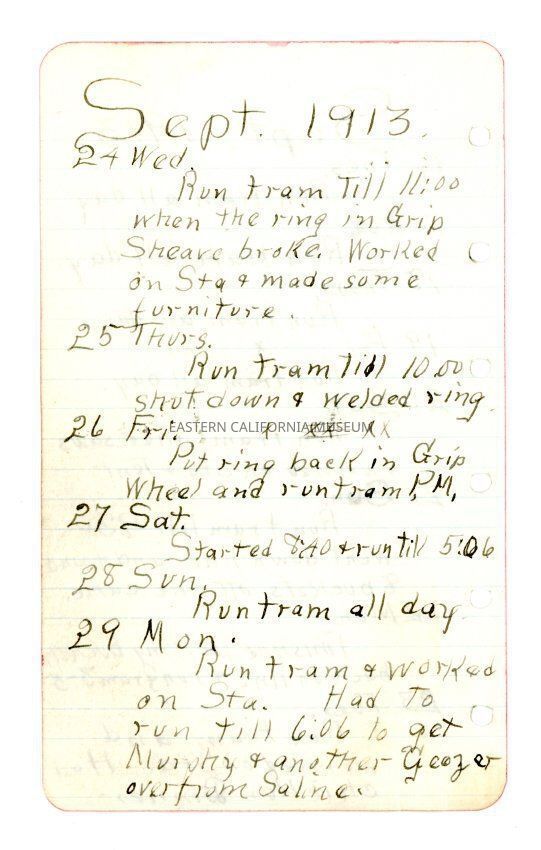 Sept. 1913.
24 Wed.
Run tram Till 11:00
when the ring in Grip
Sheave broke. Worked
on Sta & made some
furniture.
25 Thurs.
Run tram till 10.00
shut down & welded ring.
26 Fri.
EASTERN CALIFORNIA MUSEUM
Put ring back in Grip
Wheel and run tram, P.M.
27 Sat.
Started 8:40 & run till 5:06
28 Sun.
Run tram all day.
29 Mon.
Run tram & worked
on Sta. Had To
run till 6:06 to get
Murphy & another Geezer
over from Saline.